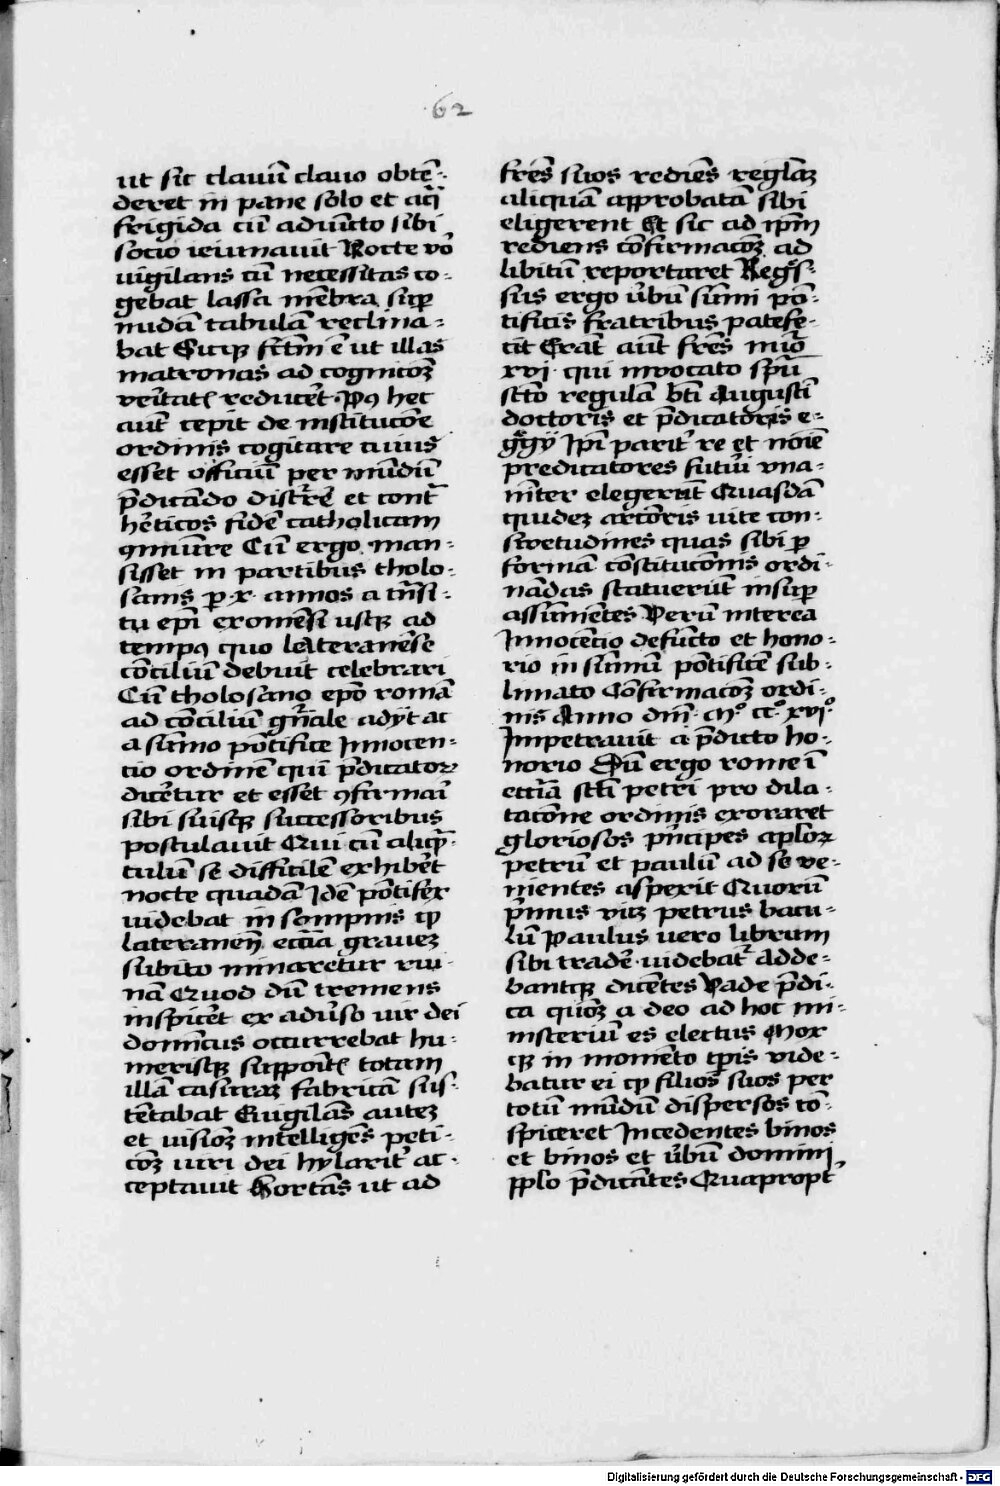 62
ut sic clauū clauo obtē-
deret in pane solo et aq̄
frigida cū adiūcto sibi
socio ieiunauit Nocte vo᾿
uigilans cū necessitas co-
gebat lassa mēbra suꝑ
nudā tabulā reclina-
bat Sicqꝫ fctm̄ ē ut illas
matronas ad cognicōꝫ
veritatꝭ reducēt Pꝰ hec
aūt cepit de institucōe
ordinis cogitare cuius
esset officiū per mūdū
p̄dicādo discurrē et cont᷑
hēticos fidē catholicam
ꝯmunire Cū ergo man-
sisset in partibus tholo-
sanis ꝑ x· annos a trāsi-
tu ep̄i exomēsi usqꝫ ad
tempꝰ quo lateranēse
cōciliū debuit celebrari
Cū tholosano ep̄o romā
ad cōciliū gn̄ale adijt ac
a sūmo pōtifice Innocen-
cio ordinē qui p̄dicatoꝝ
dicētur et esset ꝯfirmari
sibi suisqꝫ successoribus
postulauit Qui cū aliqn̄-
tulū se difficilē exhibēt
nocte quadā Idē pōtifex
uidebat in sompnis ꝙ
lateranen̄ ecc̄ia grauez
subito minaretur rui-
nā Quod dū tremens
inspicēt ex aduerso uir dei
domīcus occurrebat hu-
merisqꝫ suppoitꝭ totam
illā casuraz fabricā sus-
tētabat Euigilās autez
et uisionꝫ intelligēs peti-
cōꝫ uiri dei hylarit᷑ ac-
ceptauit Hortās ut ad
fr̄es suos rediēs reglāꝫ
aliquā approbatā sibi
eligerent Et sic ad ip̄m
rediens cōfirmacōꝫ ad
libitū reportaret Reg̾s-
sus ergo u̾bū sūmi pō-
tificis fratribus patefe-
cit Erāt aūt fr̄es nūo
xvi· qui inuocato sp̄u
scto regulam bt̄i Augusti
doctoris et p̄dicatōris e-
g̾gij Ip̄i parit᷑ re et noīe
predicatores futuri vna-
nīter elegerūt Quasdā
quidez arctōris uite con-
swetudines quas sibi ꝑ
formā cōstitucōnis ordi-
nādas statuerūt insuꝑ
assūmentes Verū interea
Innocēcio defūcto et hono-
rio in sūmū pōtificē sub-
limato Cōfirmacōꝫ ordi-
nis Anno dn̄i· Mº ccº xviº
Impetrauit a p̄dicto ho-
norio Dū ergo rome ī
ecc̄ia scti petri pro dila-
tacōne ordinis exoraret
gloriosos pn̄cipes aploꝝ
petrū et paulū ad se ve-
nientes aspexit Quorū
p̄mus viꝫ petrus bacu-
lū Paulus uero librum
sibi tradē uidebat᷑ Adde-
bantqꝫ dicētes Vade p̄di-
ca quōꝫ a deo ad hoc mi-
nisteriū es electus Mox
qꝫ in momēto tꝑis vide-
batur ei ꝙ filios suos per
totū mūdū dispersos cō-
spiceret Incedentes binos
et binos et u̾bū domini
pplo p̄dicātes Quapropt᾿
Digitalisierung gefördert durch die Deutsche Forschungsgemeinschaft - DFG